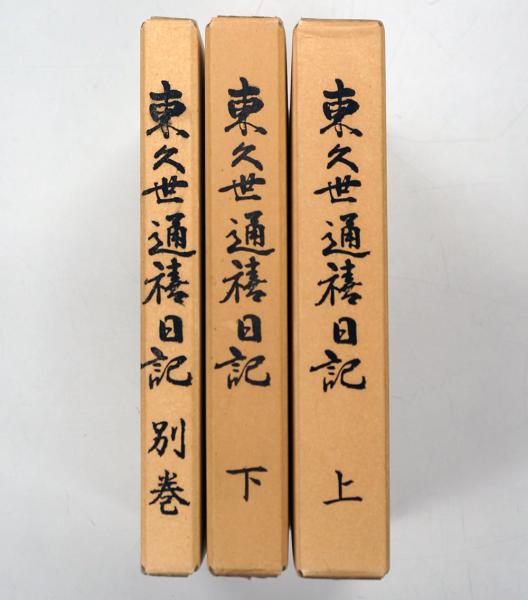 東久世通禧日記 上
東久世通禧日記 下
東久世通禧日記 別巻